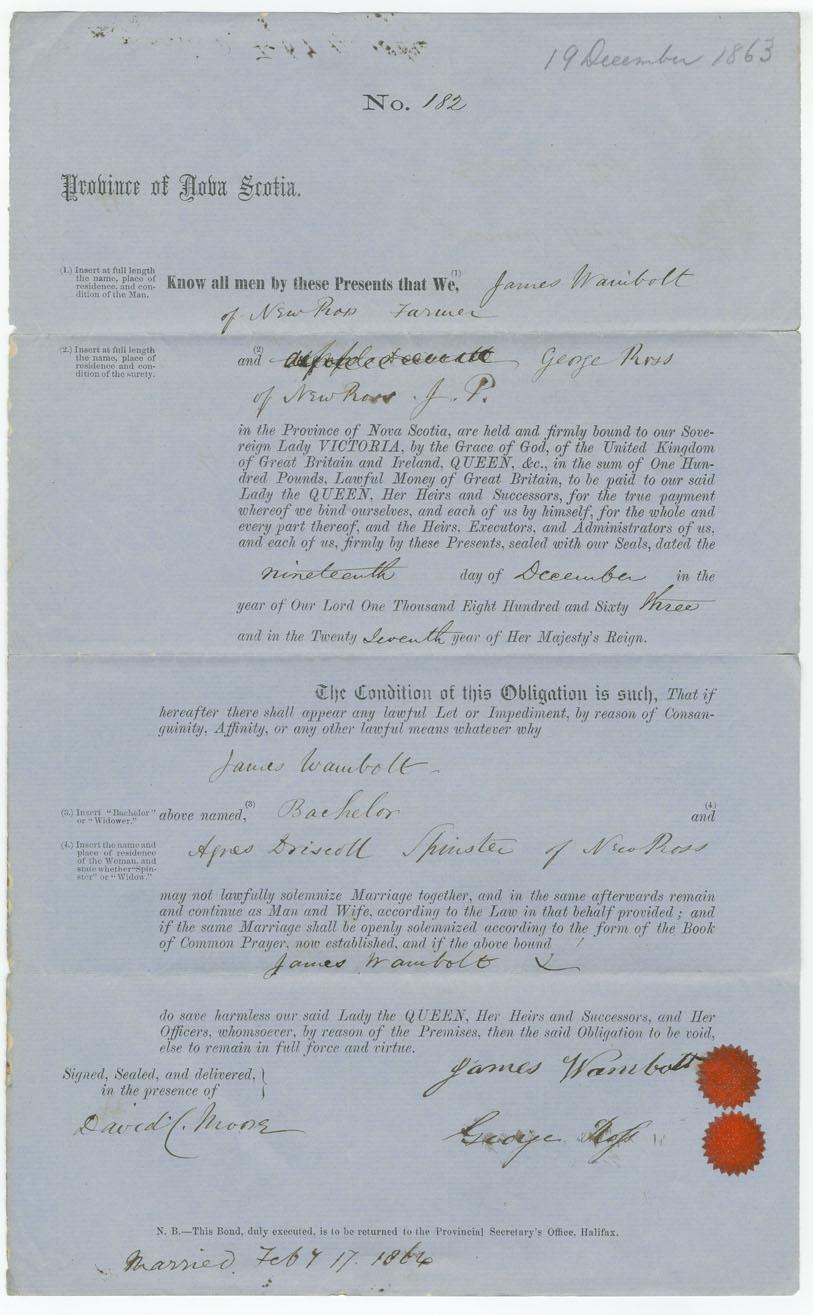 19 December 1863
No. 182
Province of Nova Scotia.
(1.) Insert at full length
the name, place of
residence, and con-
dition of the Man.
Know all men by these Presents that We, (1) James Wambolt
of New Ross Farmer
(2.) Insert at full length
the name, place of
residence and con-
dition of the surety.
and (2) George Ross
of New Ross J. P.
in the Province of Nova Scotia, are held and firmly bound to our Sove-
reign Lady VICTORIA, by the Grace of God, of the United Kingdom
of Great Britain and Ireland, QUEEN, &c., in the sum of One Hun-
dred Pounds, Lawful Money of Great Britain, to be paid to our said
Lady the QUEEN, Her Heirs and Successors, for the true payment
whereof we bind ourselves, and each of us by himself, for the whole and
every part thereof, and the Heirs, Executors, and Administrators of us,
and each of us, firmly by these Presents, sealed with our Seals, dated the
nineteenth day of December in the
year of Our Lord One Thousand Eight Hundred and Sixty three
and in the Twenty Seventh year of Her Majesty's Reign.
The Condition of this Obligation is such, That if
hereafter there shall appear any lawful Let or Impediment, by reason of Consan-
guinity, Affinity, or any other lawful means whatever why
James Wambolt
(3.) Insert "Bachelor"
or "Widower."
above named, (3) Bachelor (4) and
(4.) Insert the name and
place of residence
of the Woman, and
state whether "Spin-
ster" or "Widow."
Agnes Driscoll Spinster of New Ross
may not lawfully solemnize Marriage together, and in the same afterwards remain
and continue as Man and Wife, according to the Law in that behalf provided; and
if the same Marriage shall be openly solemnized according to the form of the Book
of Common Prayer, now established, and if the above bound
James Wambolt
do save harmless our said Lady the QUEEN, Her Heirs and Successors, and Her
Officers, whomsoever, by reason of the Premises, then the said Obligation to be void,
else to remain in full force and virtue.
Signed, Sealed, and delivered,
in the presence of
James Wambolt
David C. Moore
George Ross
N. B.—This Bond, duly executed, is to be returned to the Provincial Secretary's Office, Halifax.
Married Feby 17. 1864